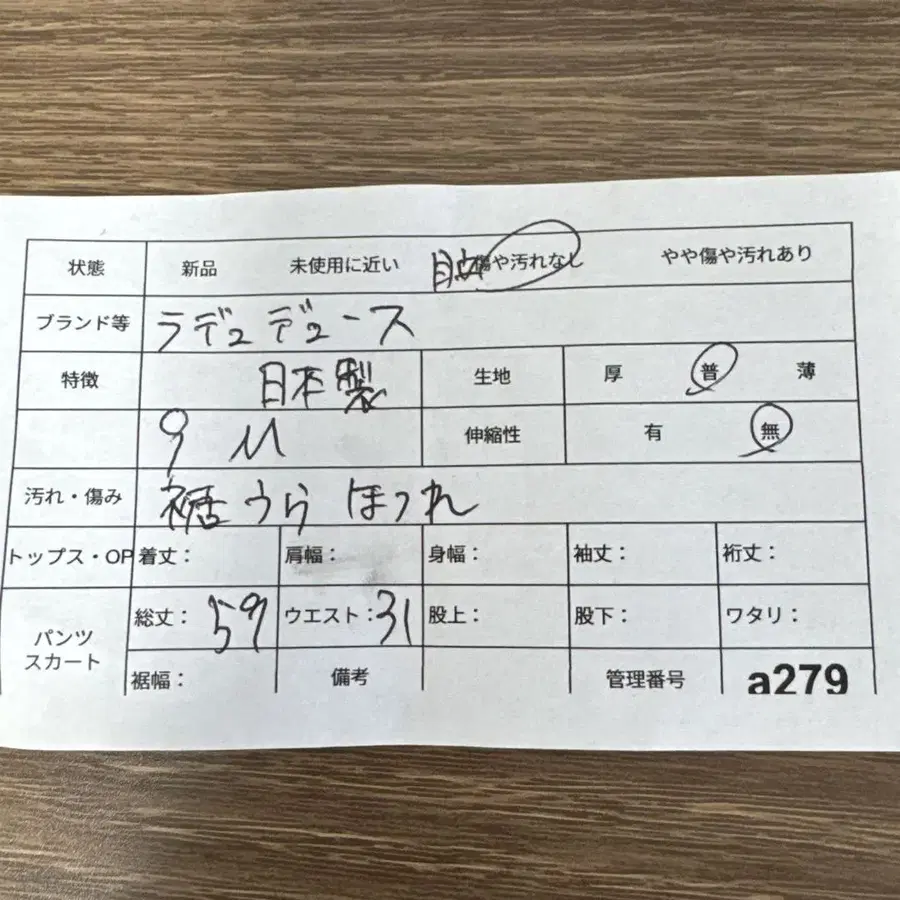 状態 新品 未使用に近い 目立傷や汚れなし やや傷や汚れあり
ブランド等 ラデュデュース
特徴 日本製 生地 厚 普 薄
9 M 伸縮性 有 無
汚れ・傷み 裾うらほつれ
トップス・OP 着丈： 肩幅： 身幅： 袖丈： 裄丈：
パンツ スカート 総丈：59 ウエスト：31 股上： 股下： ワタリ：
裾幅： 備考 管理番号 a279